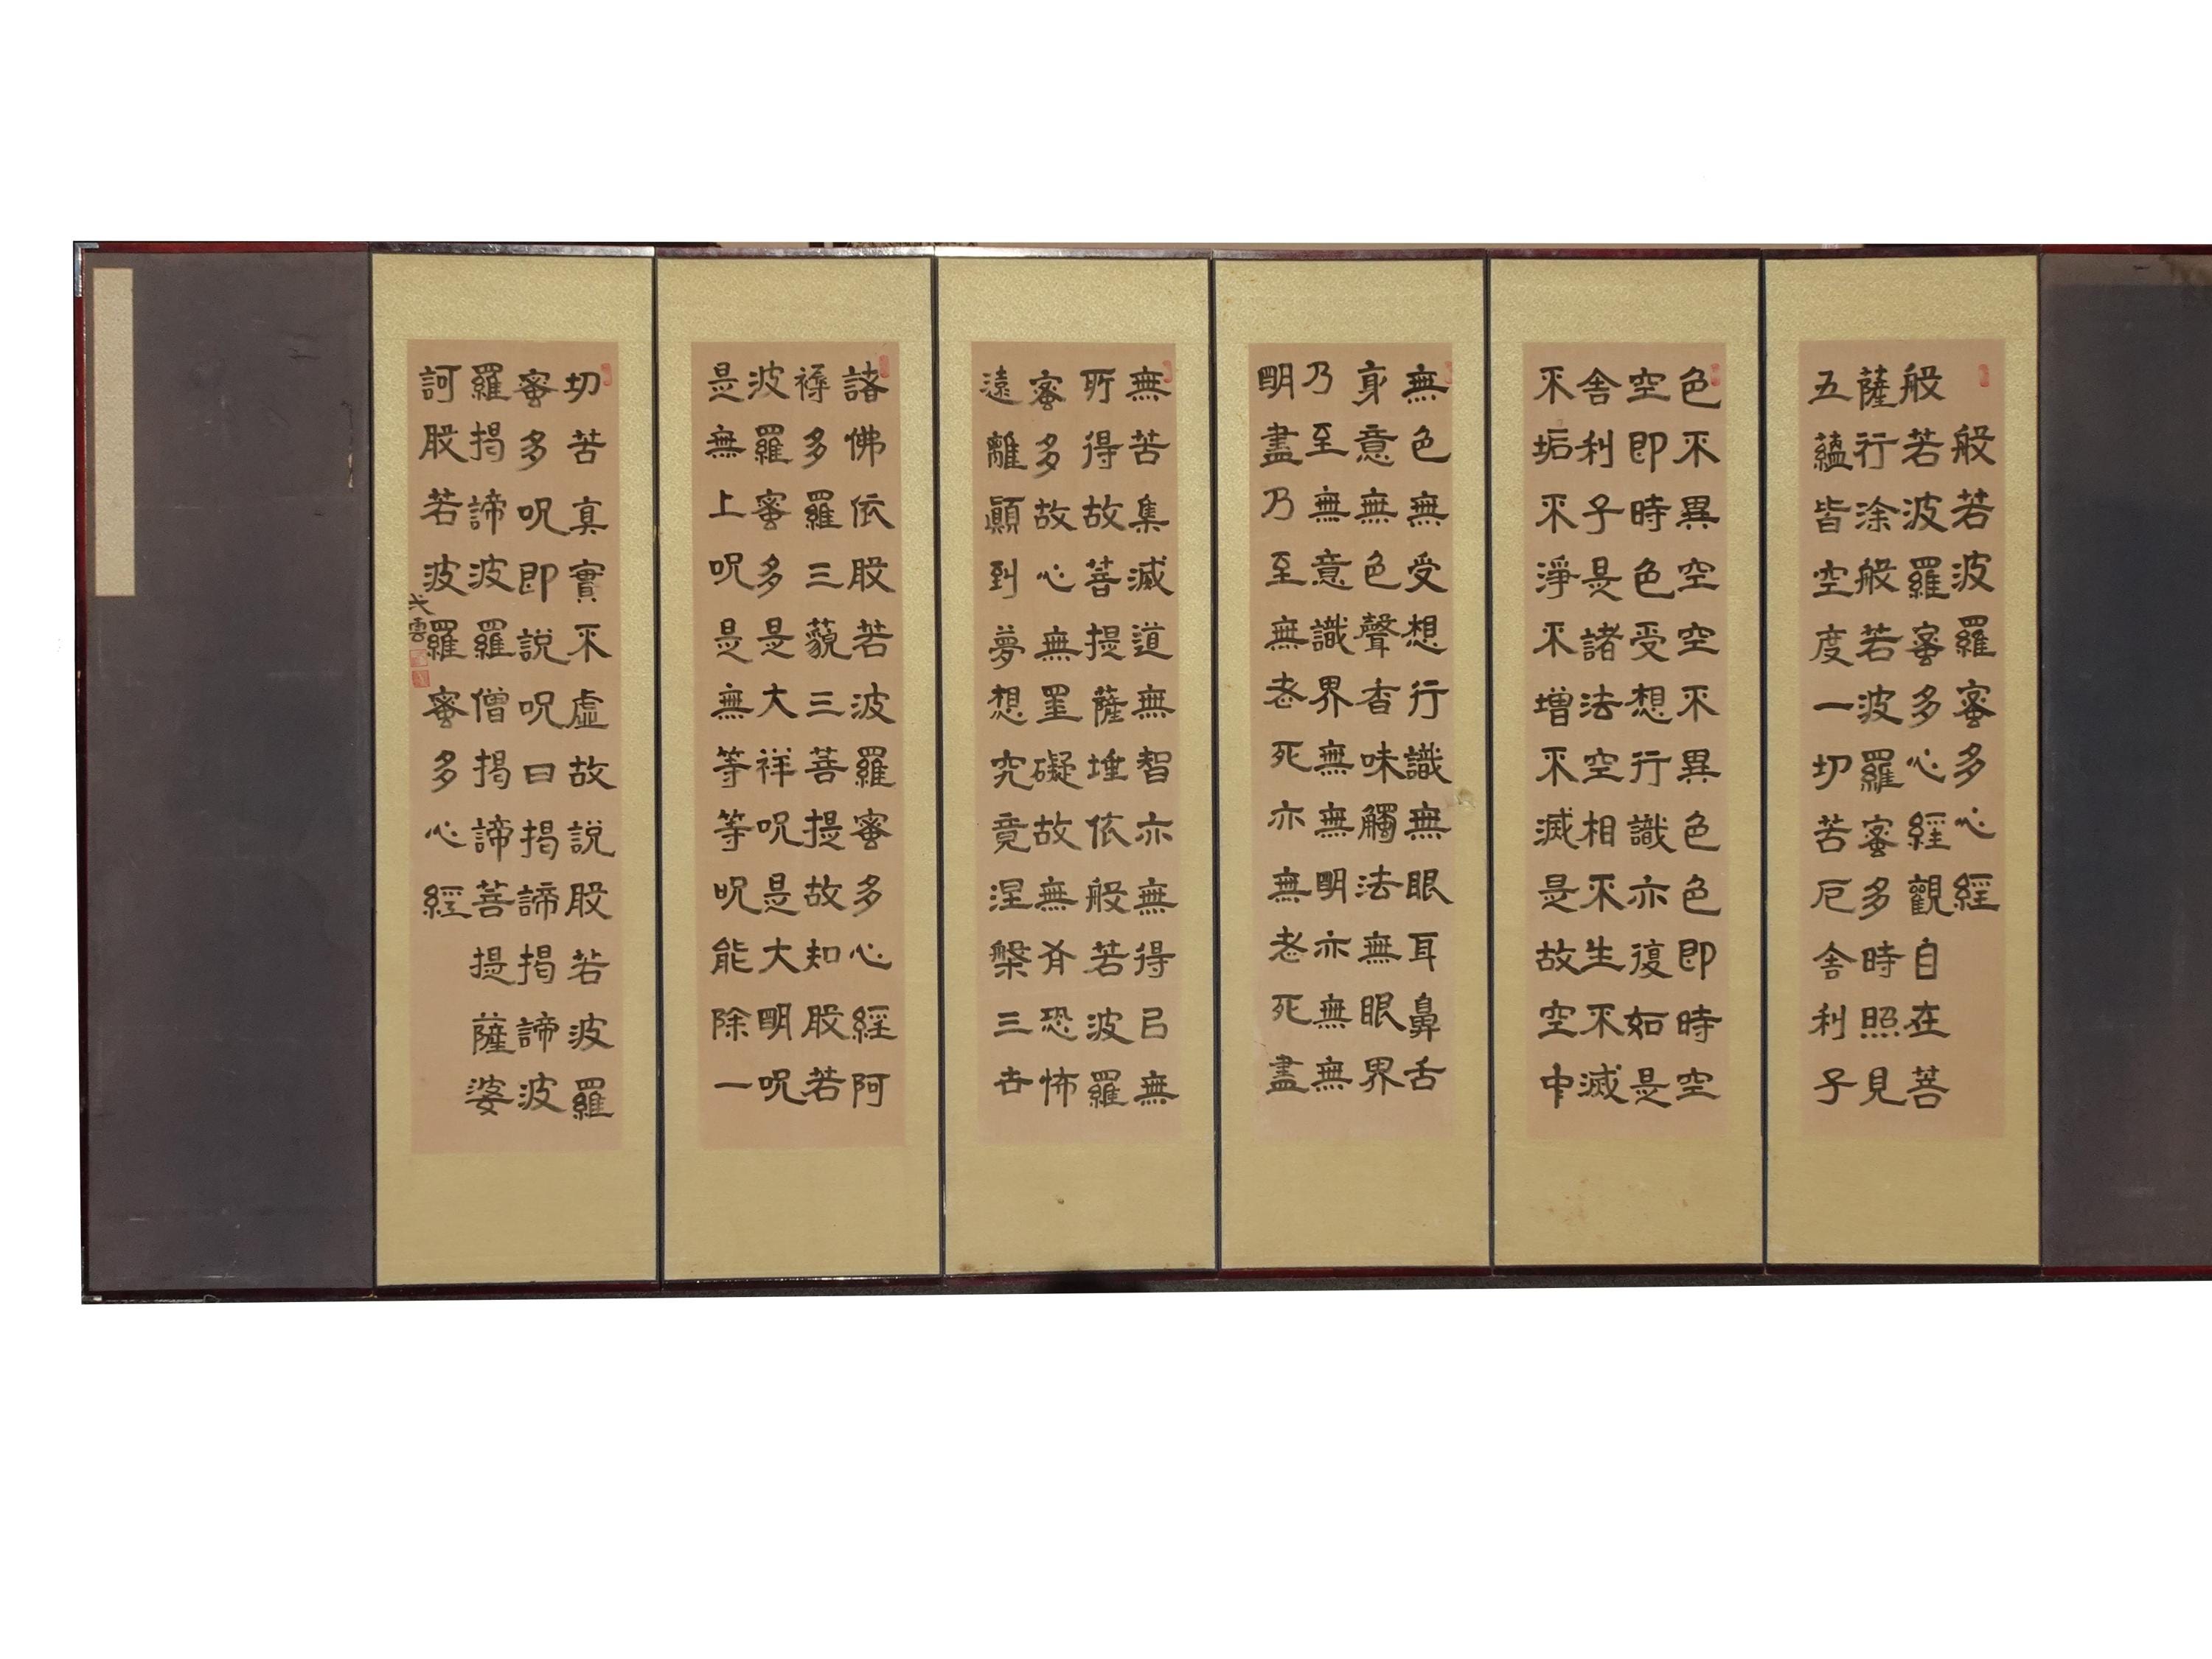 般若波羅蜜多心經
般若波羅蜜多心經觀自在菩
薩行涂般若波羅蜜多時照見
五蘊皆空度一切苦厄舍利子
色不異空空不異色色即時空
空即時色受想行識亦復如是
舍利子是諸法空相不生不滅
不垢不淨不增不滅是故空中
無色無受想行識無眼耳鼻舌
身意無色聲香味觸法無眼界
乃至無意識界無無明亦無無
明盡乃至無老死亦無老死盡
無苦集滅道無智亦無得已無
所得故菩提薩埵依般若波羅
蜜多故心無罣礙故無有恐怖
遠離顚到夢想究竟涅槃三世
諸佛依般若波羅蜜多心經阿
褥多羅三藐三菩提故知般若
波羅蜜多是大祥呪是大明呪
是無上呪是無等等呪能除一
切苦真實不虛故說般若波羅
蜜多呪即說呪曰揭諦揭諦波
羅揭諦波羅僧揭諦菩提薩婆
訶般若波羅蜜多心經
雲